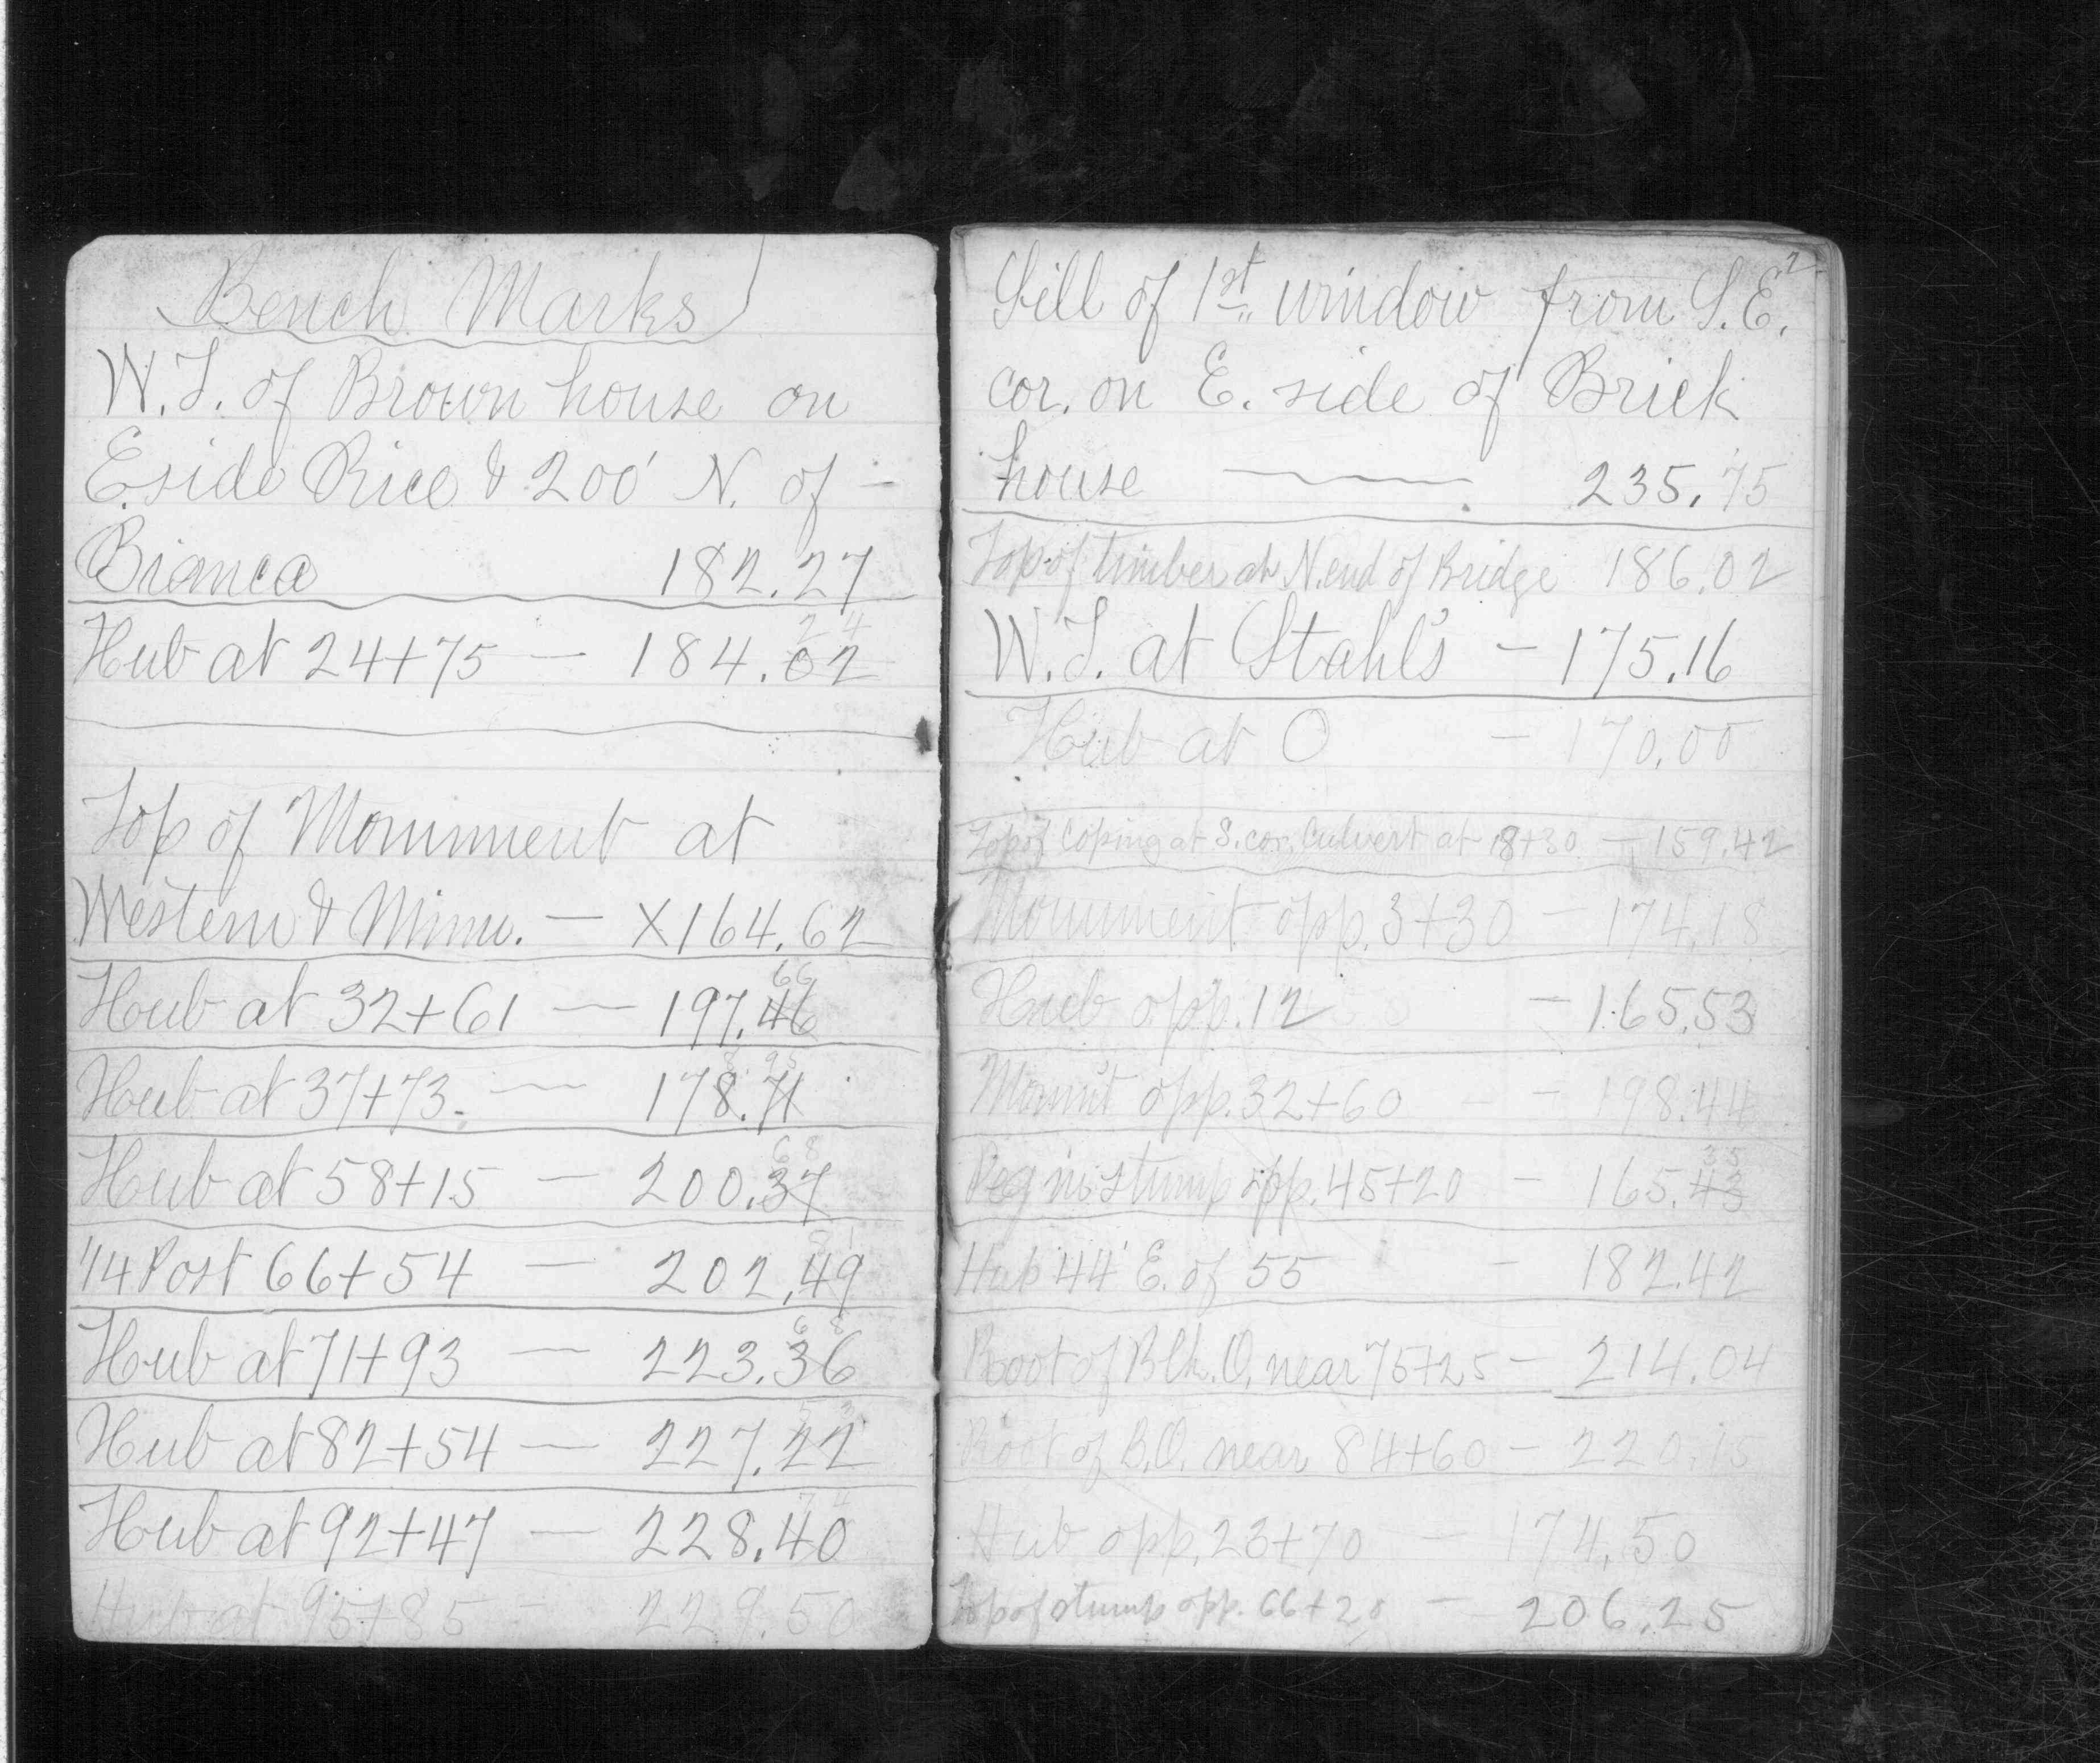 Bench Marks
W.T. of Brown house on
E. side Rice & 200' N. of -
Bianca 182.27
2 4
Hub at 24+75 — 184.02
Top of Monument at
Western & Minn. — X164.62
66
Hub at 32+61 — 197.46
8 95
Hub at 37+73. — 178.71
68
Hub at 58+15 — 200.37
1/4 Post 66+54 — 202.49
6 8
Hub at 71+93 — 223.36
Hub at 82+54 — 227.22
7 4
Hub at 92+47 — 228.40
Hub at 95+85 — 229.50
2
Sill of 1st window from S.E.
cor. on E. side of Brick
house — 235.75
Top of timber at N. end of Bridge 186.02
W.T. at Stahl's — 175.16
Hub at 0 — 170.00
Top of Coping at S. cor. Culvert at 18+30 — 159.42
Monument opp. 3+30 — 174.18
Hub opp. 12 — 165.53
Monm't opp. 32+60 - - 198.44
35
Peg in stump opp. 45+20 — 165.43
Hub 44' E. of 55 — 182.42
Root of Blk. O. near 75+25 — 214.04
Root of B.O. near 84+60 — 220.15
Hub opp. 23+70 — 174.50
Top of stump opp. 66+20 — 206.25